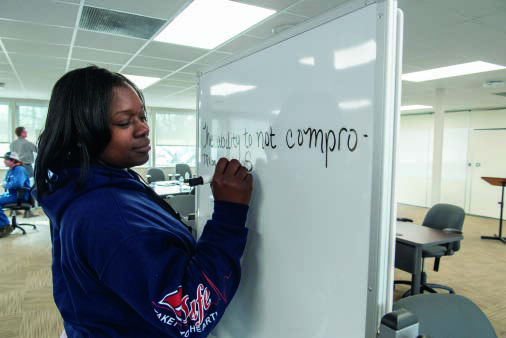 The ability to not compro-
Life
TAKE
TO HEART